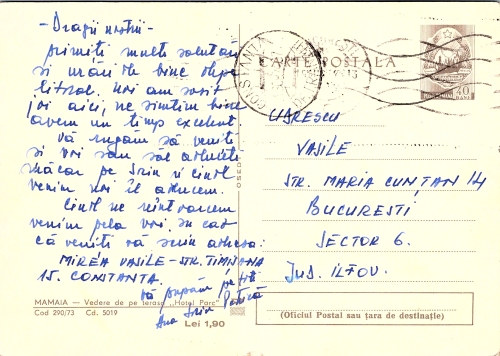 - Dragii noștri -
primiți multe salutări
și urări de bine de pe
litoral. Noi am sosit
joi aici, ne simțim bine
avem un timp excelent
Vă rugăm să veniți
și voi sau să
măcar pe și când
venim noi îl aducem.
Când ne reîntoarcem
venim pela voi. In caz
că veniți vă scriu adresa:
MIREA VASILE - STR. TIMIȘANA
15. CONSTANTA.
vă pupăm pe toți
Ana
MAMAIA — Vedere de pe terasa „Hotel Parc"
Cod 290/73 Cd. 5019
Lei 1,90
CARTE POSTALA
CONSTANTA
40
BANI
VASILE
STR. MARIA CUNȚAN 14
BUCUREȘTI
SECTOR 6.
JUD. ILFOV.
(Oficiul Postal sau țara de destinație)